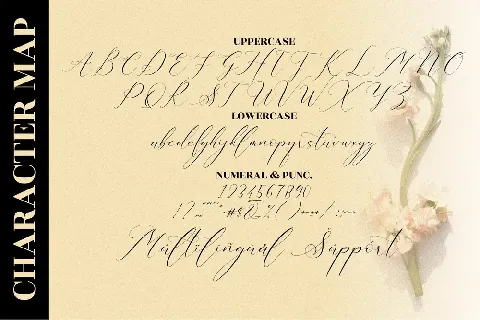 CHARACTER MAP
UPPERCASE
A B C D E F G H I J K L M N O
P Q R S T U V W X Y Z
LOWERCASE
abcdefghijklmnopqrstuvwxyz
NUMERAL & PUNC.
1234567890
Multilingual Support